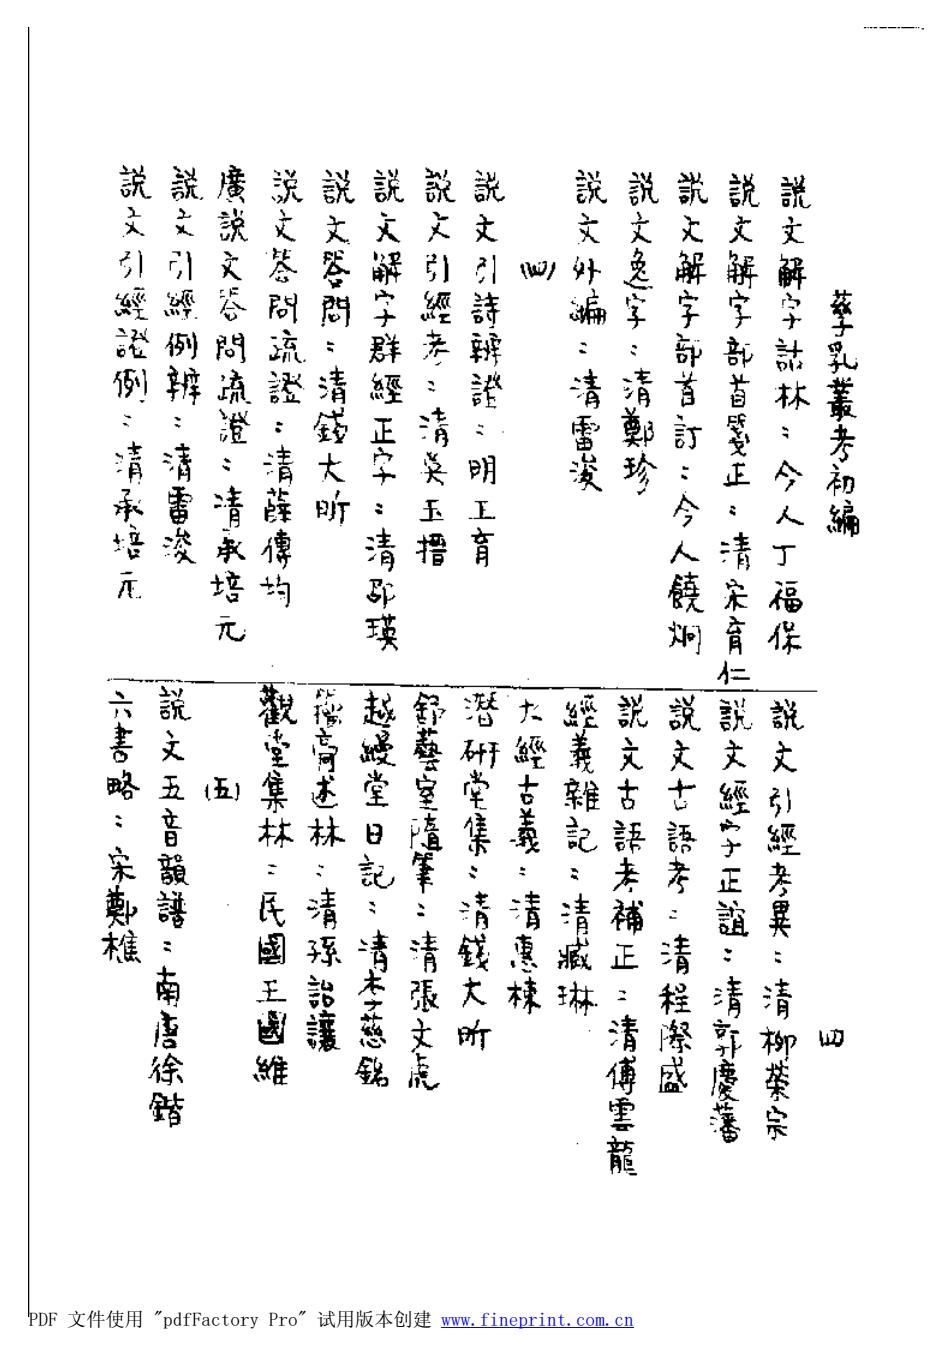 孳乳叢考初編
四
說文解字詁林：今人丁福保
說文解字部首箋正：清宋育仁
說文解字部首訂：今人饒炯
說文逸字：清鄭珍
說文外編：清雷浚
(四)
說文引詩辨證：明王育
說文引經考：清吳玉搢
說文解字群經正字：清邵瑛
說文答問：清錢大昕
說文答問疏證：清薛傳均
廣說文答問疏證：清承培元
說文引經例辨：清雷浚
說文引經證例：清承培元
說文引經考異：清柳榮宗
說文經字正誼：清郭慶藩
說文古語考：清程際盛
說文古語考補正：清傅雲龍
經義雜記：清臧琳
九經古義：清惠棟
潛研堂集：清錢大昕
舒藝室隨筆：清張文虎
越縵堂日記：清李慈銘
籀膏述林：清孫詒讓
觀堂集林：民國王國維
(五)
說文五音韻譜：南唐徐鍇
六書略：宋鄭樵
PDF 文件使用 "pdfFactory Pro" 试用版本创建 www.fineprint.com.cn